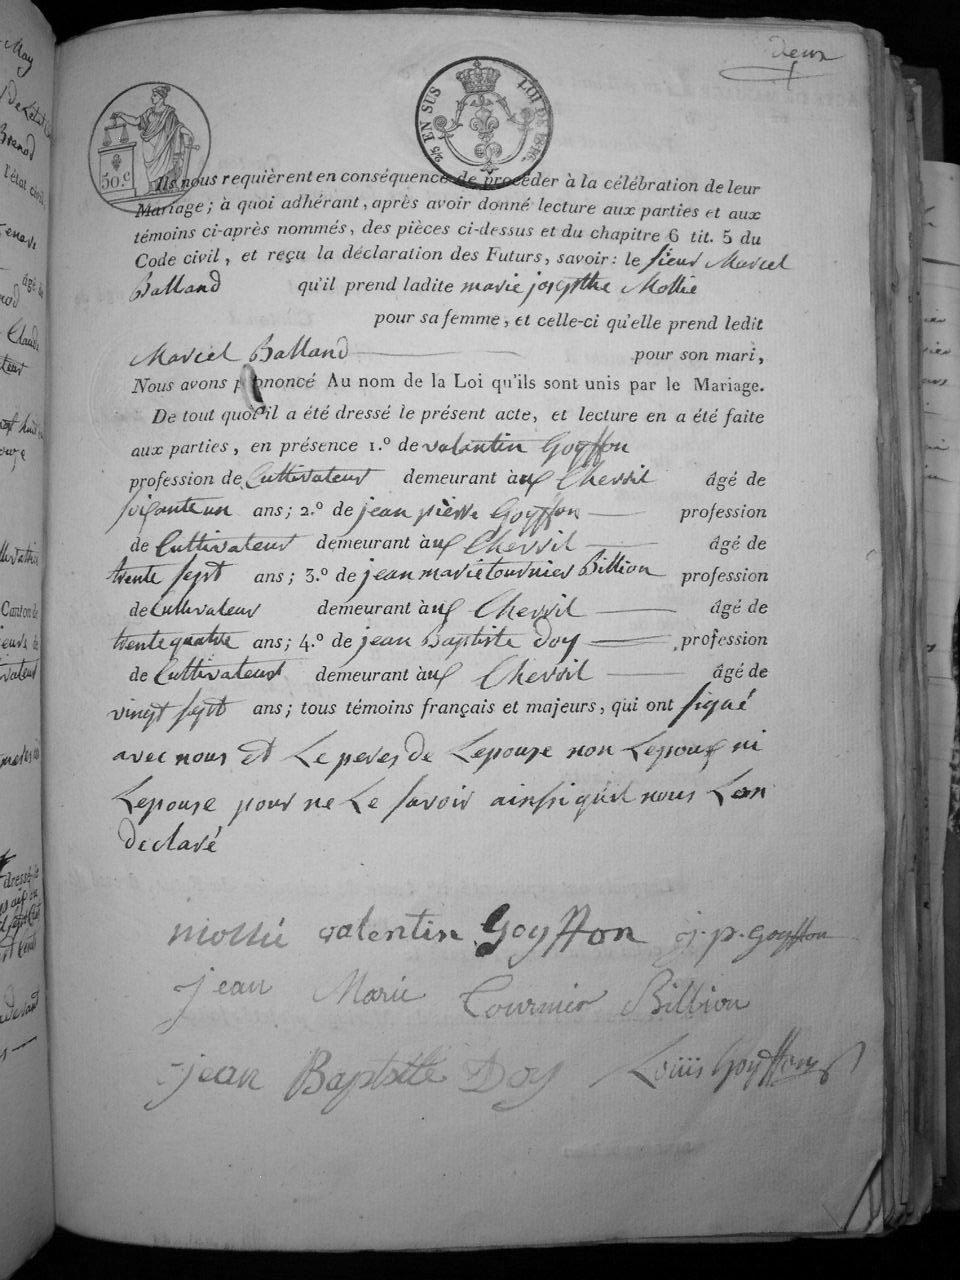 deux
2/5 EN SUS LOI DE 1816
50.c
Ils nous requièrent en conséquence de procéder à la célébration de leur
Mariage; à quoi adhérant, après avoir donné lecture aux parties et aux
témoins ci-après nommés, des pièces ci-dessus et du chapitre 6 tit. 5 du
Code civil, et reçu la déclaration des Futurs, savoir: le sieur Marcel
Balland qu'il prend ladite marie josepthe Mollie
pour sa femme, et celle-ci qu'elle prend ledit
Marcel Balland pour son mari,
Nous avons prononcé Au nom de la Loi qu'ils sont unis par le Mariage.
De tout quoi il a été dressé le présent acte, et lecture en a été faite
aux parties, en présence 1.º de valentin Goyffon
profession de Cultivateur demeurant aux Chevril âgé de
soixante un ans; 2.º de jean pierre Goyffon profession
de Cultivateur demeurant aux Chevril âgé de
trente sept ans; 3.º de jean marie tournier Billion profession
de Cultivateur demeurant aux Chevril âgé de
trente quatre ans; 4.º de jean Baptiste Doy profession
de Cultivateur demeurant aux Chevril âgé de
vingt sept ans; tous témoins français et majeurs, qui ont signé
avec nous et Le peres de Lepouse non Lepoux ni
Lepouse pour ne Le savoir ainsi quil nous Lon
declaré
mollié valentin Goyffon j. p. goyffon
jean Marie Tournier Billion
jean Baptiste Doy Louis Goyffon